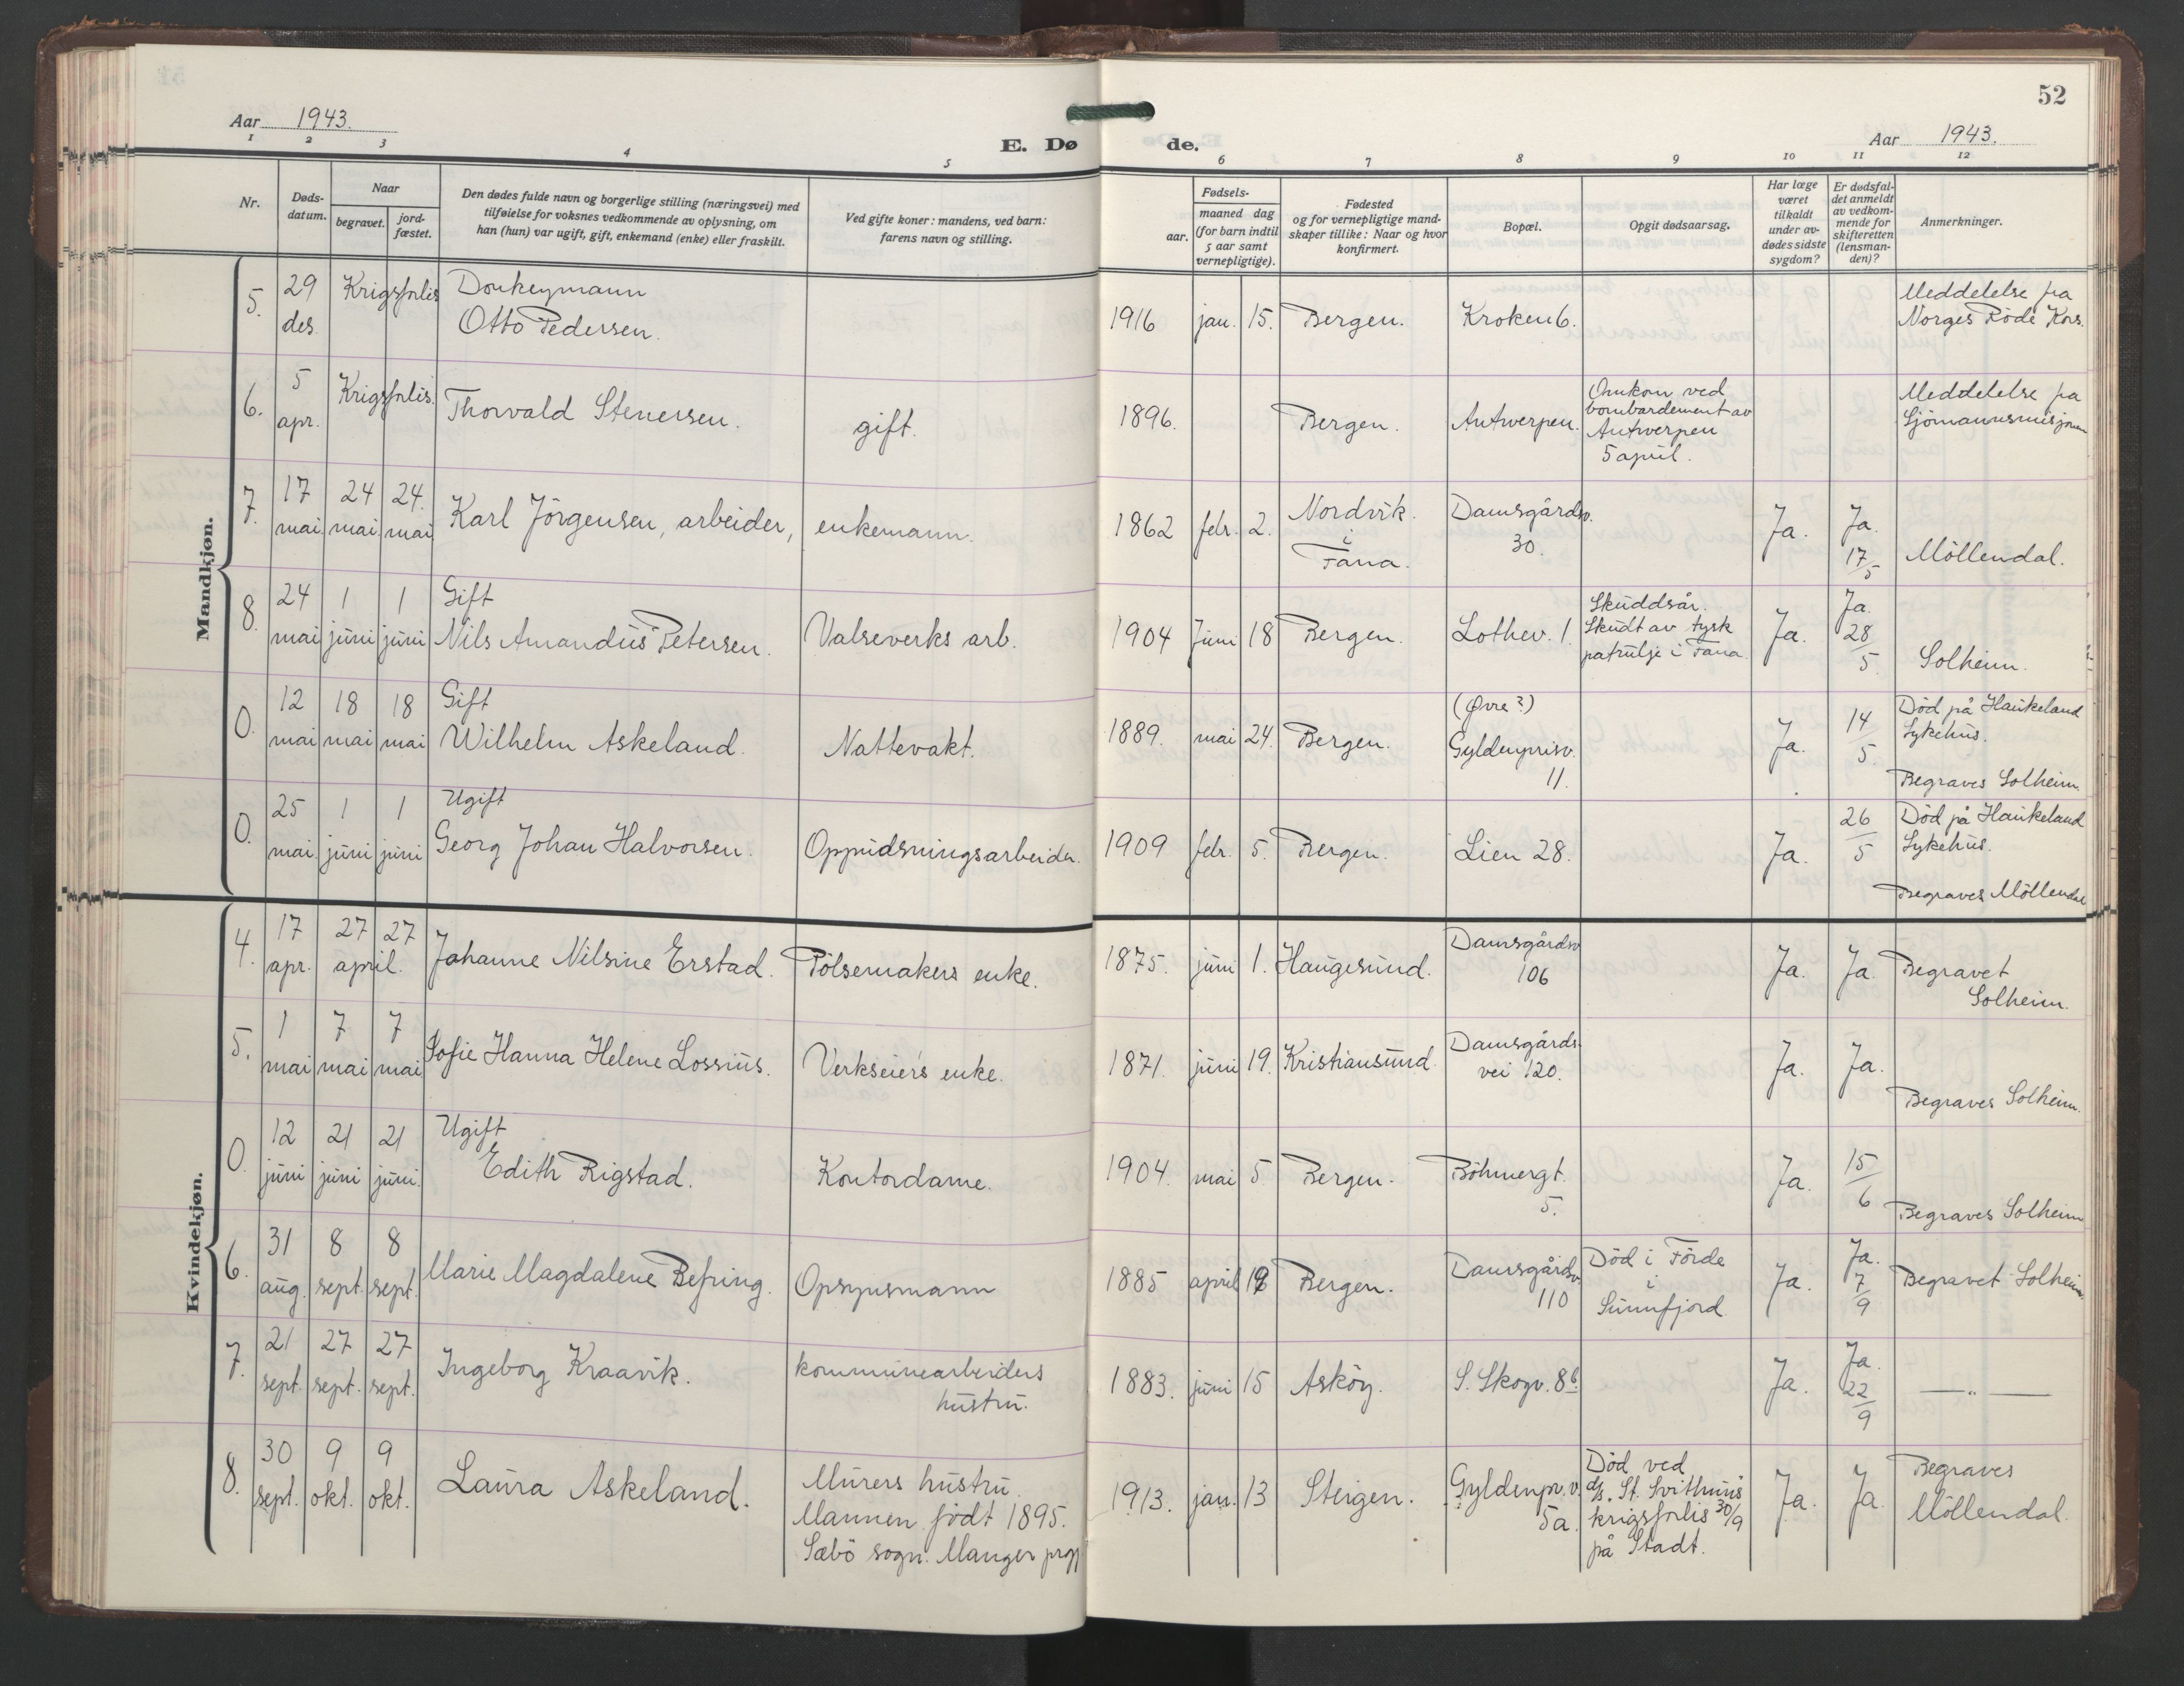 Aar 1943.
E. Dø
1 2 3 4 5
Nr.
Døds-
datum.
Naar
begravet.
jord-
fæstet.
Den dødes fulde navn og borgerlige stilling (næringsvei) med
tilføielse for voksnes vedkommende av oplysning, om
han (hun) var ugift, gift, enkemand (enke) eller fraskilt.
Ved gifte koner: mandens, ved barn:
farens navn og stilling.
52
de.
Aar 1943.
6 7 8 9 10 11 12
aar.
Fødsels-
maaned dag
(for barn indtil
5 aar samt
vernepligtige).
Fødested
og for vernepligtige mand-
skaper tillike: Naar og hvor
konfirmert.
Bopæl.
Opgit dødsaarsag.
Har læge
været
tilkaldt
under av-
dødes sidste
sygdom?
Er dødsfal-
det anmeldt
av vedkom-
mende for
skifteretten
(lensman-
den)?
Anmerkninger.
Mandkjøn.
5.
29
des.
Krigsforlis
Donkeymann
Otto Pedersen.
1916 jan. 15. Bergen. Kroken 6.
Meddelelse fra
Norges Röde Kors.
6.
5
apr.
Krigsforlis.
Thorvald Stenersen.
gift.
1896. Bergen. Antwerpen.
Omkom ved
bombardement av
Antwerpen
5 april.
Meddelelse fra
Sjömannsmisjonen
7.
17 24 24.
mai. mai. mai
Karl Jörgensen, arbeider, enkemann.
1862 febr. 2.
Nordvik.
i
Fana.
Damsgårdsv.
30.
Ja.
Ja.
17/5
Möllendal.
8.
24 1 1
mai juni juni
Gift
Nils Amandus Petersen. Valseverks arb.
1904 Juni 18 Bergen. Lothev. 1.
Skuddsår.
Skudt av tysk
patrulje i Fana.
Ja.
Ja.
28/5
Solheim.
0.
12 18 18
mai mai mai
Gift
Wilhelm Askeland. Nattevakt.
1889. mai 24. Bergen.
(Øvre?)
Gyldenprisv.
11.
Ja.
14/5
Död på Haukeland
Sykehus.
Begraves Solheim.
0.
25 1 1
mai. juni juni
Ugift
Georg Johan Halvorsen. Oppudsningsarbeider.
1909 febr. 5. Bergen. Lien 28.
Ja.
26/5
Död på Haukeland
Sykehus.
Begraves Möllendal
Kvindekjøn.
4.
17 27 27
apr. april.
Johanne Nilsine Erstad. Pölsemakers enke.
1875. juni 1. Haugesund.
Damsgårdsv
106
Ja. Ja
Begravet
Solheim.
5.
1 7 7
mai mai mai
Sofie Hanna Helene Lossius. Verkseier's enke.
1871. juni 19. Kristiansund.
Damsgårds-
vei 120.
Ja. Ja.
Begraves Solheim.
0.
12 21 21
juni juni juni.
Ugift
Edith Rigstad. Kontordame.
1904. mai 5. Bergen.
Böhmergt.
5.
Ja.
15/6
Begraves Solheim
6.
31 8 8
aug. sept. sept.
Marie Magdalene Befring. Opsynsmann
1885 april Bergen.
Damsgårdsv.
110
Död i Förde
i
Sunnfjord
Ja.
Ja.
7/9
Begravet Solheim.
7.
21 27 27
sept. sept. sept.
Ingeborg Kraavik.
kommunearbeiders
hustru.
1883. juni 15 Asköy. S. Skogv. 8b.
Ja.
Ja.
22/9
— „ —
8.
30 9 9
sept. okt. okt.
Laura Askeland.
Murers hustru.
Mannen födt 1895.
Sæbö sogn. Manger prgj
1913. jan. 13 Steigen.
Gyldenpr. v.
5a.
Död ved
d/s. St. Svithuns
krigsforlis 30/9
på Stadt.
Ja. Ja.
Begraves
Möllendal.